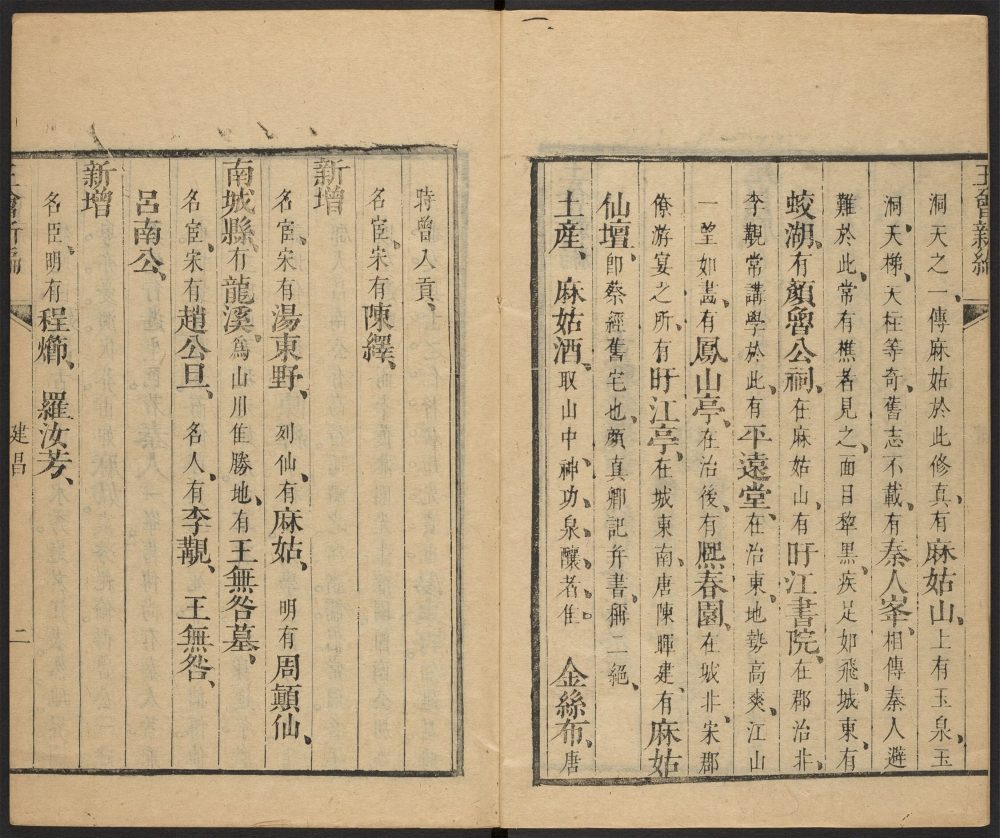 洞天之一、傳麻姑於此修真、有麻姑山、上有玉泉、玉
洞、天梯、天柱等奇、舊志不載、有秦人峯、相傳秦人避
難於此、常有樵者見之、面目犂黑、疾足如飛、城東、有
蛟湖、有顏魯公祠、在麻姑山、有盱江書院、在郡治北、
李覯常講學於此、有平遠堂、在治東、地勢高爽、江山
一望如畫、有鳳山亭、在治後、有熙春園、在城北、宋郡
僚游宴之所、有盱江亭、在城東南、唐陳暉建、有麻姑
仙壇、卽蔡經舊宅也、顏真卿記并書、稱二絕、
土産、麻姑酒、取山中神功泉釀者、佳。 金絲布、唐
時曾入貢、
名宦、宋有陳繹、
新增
名宦、宋有湯東野、 列仙、有麻姑、 明有周顛仙、
南城縣、有龍溪、爲山川隹勝地、有王無咎墓、
名宦、宋有趙公旦、 名人、有李覯、 王無咎、
呂南公、
新增
名臣、明有程 羅汝芳、
建昌
二